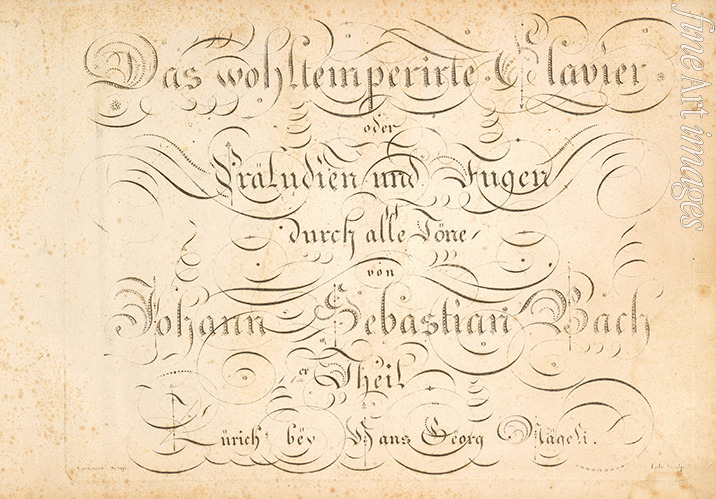 Das wohltemperirte Clavier
oder
Präludien und Fugen
durch alle Töne
von
Johann Sebastian Bach
er Theil
Zürich bëy Hans Gëorg Nägeli.
fine Art images